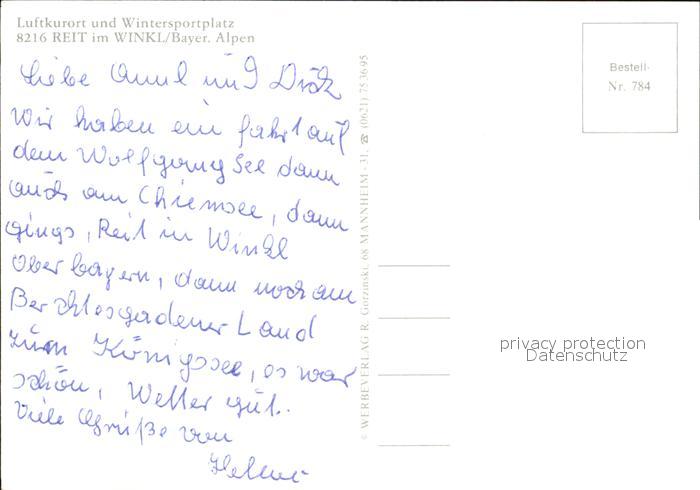 Luftkurort und Wintersportplatz
8216 REIT im WINKL/Bayer. Alpen
Liebe und
wir haben ein fahrt auf
dem Wolfgang See dann
auch am Chiemsee, dann
gings, Reit in Winkl
Oberbayern, dann noch am
Berchtesgadener Land
zum Königssee, es war
schön, Wetter gut.
Viele Grüße von
© WERBEVERLAG R. Gorzinski, 68 MANNHEIM-31, ☎ (0621) 753695
Bestell-
Nr. 784
privacy protection
Datenschutz